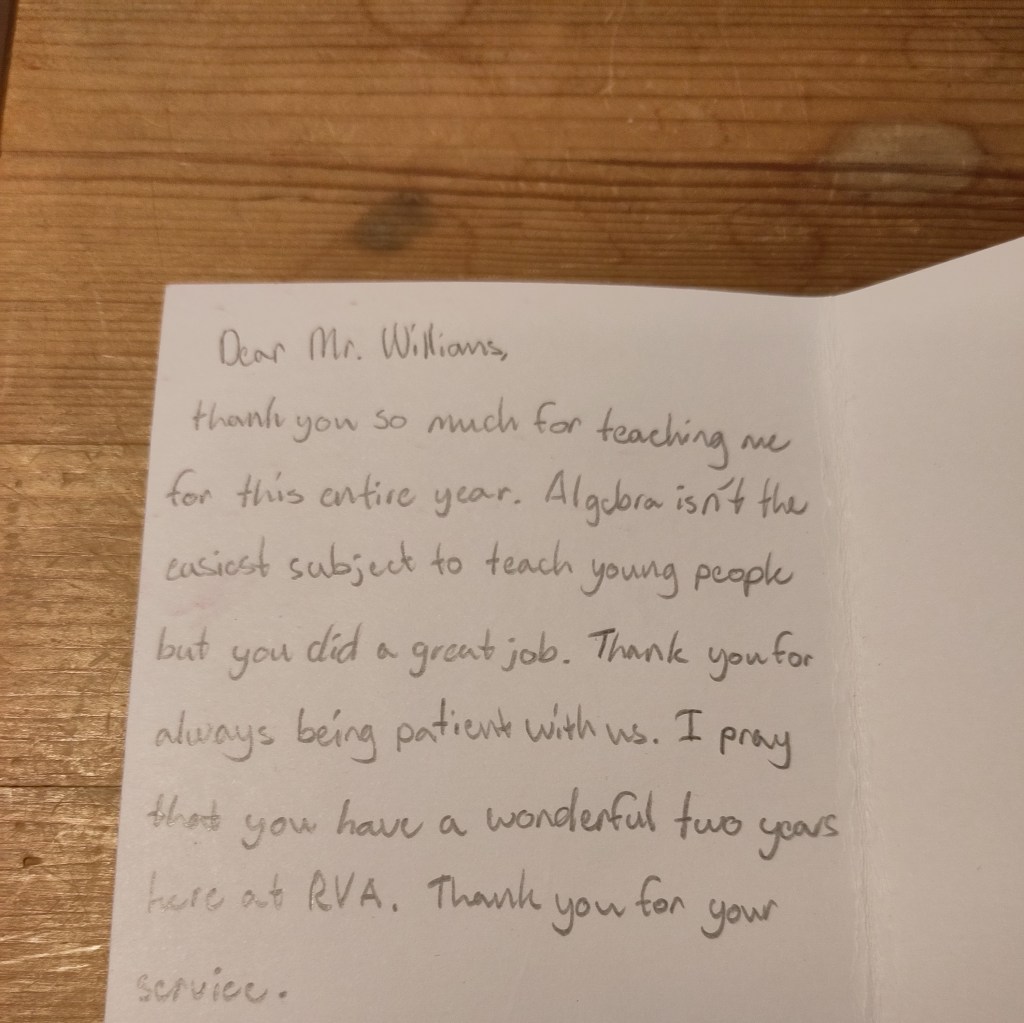 Dear Mr. Williams,
thank you so much for teaching me
for this entire year. Algebra isn't the
easiest subject to teach young people
but you did a great job. Thank you for
always being patient with us. I pray
that you have a wonderful two years
here at RVA. Thank you for your
service.